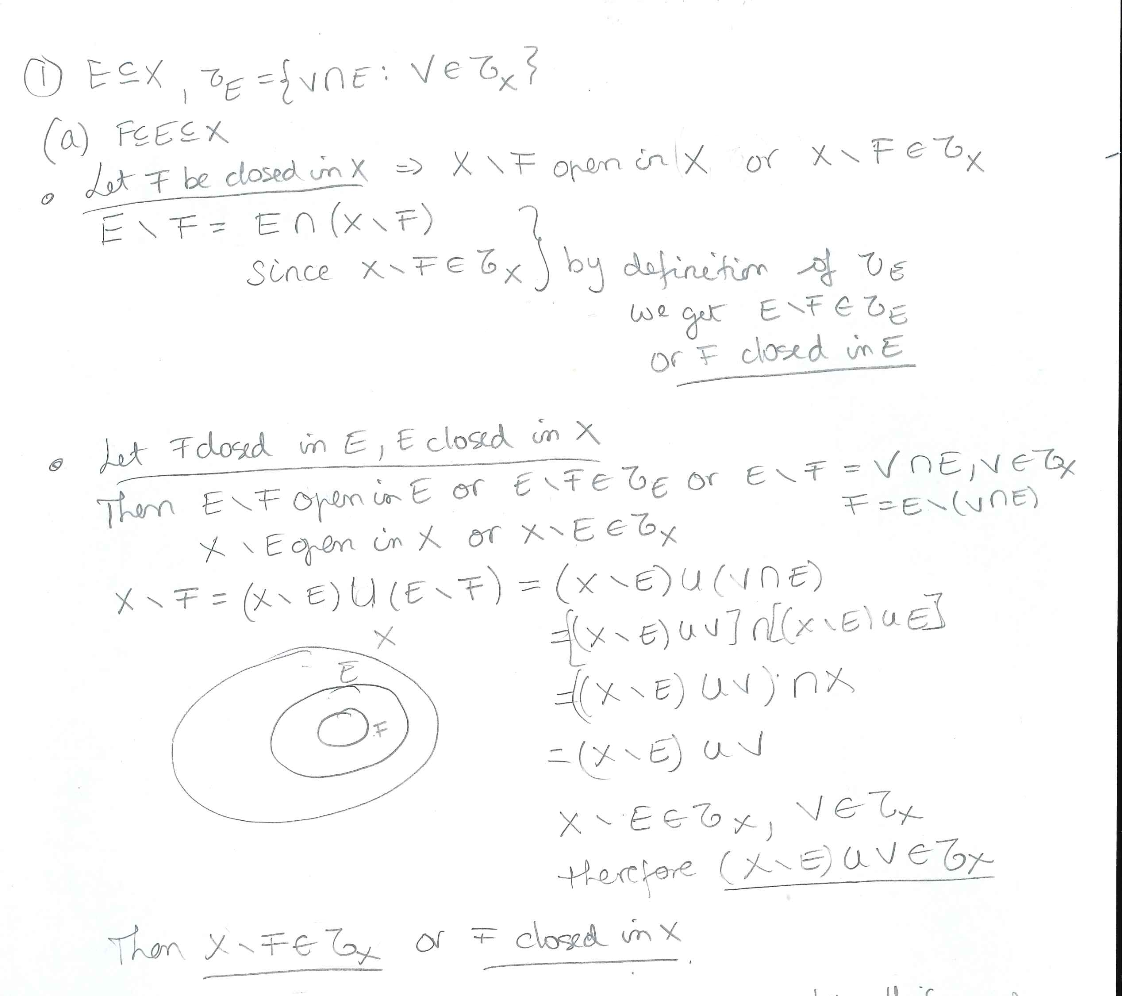 ① E⊆X, τ_E = {V∩E : V∈τ_X}
(a) F⊆E⊆X
∘ Let F be closed in X ⇒ X∖F open in X or X∖F∈τ_X
E∖F = E∩(X∖F)
since X∖F∈τ_X } by definition of τ_E
we get E∖F∈τ_E
or F closed in E
∘ Let F closed in E, E closed in X
Then E∖F open in E or E∖F∈τ_E or E∖F = V∩E, V∈τ_X
F = E∖(V∩E)
X∖E open in X or X∖E∈τ_X
X∖F = (X∖E)∪(E∖F) = (X∖E)∪(V∩E)
=[(X∖E)∪V]∩[(X∖E)∪E]
=((X∖E)∪V)∩X
=(X∖E)∪V
X
E
F
X∖E∈τ_X, V∈τ_X
therefore (X∖E)∪V∈τ_X
Then X∖F∈τ_X or F closed in X.